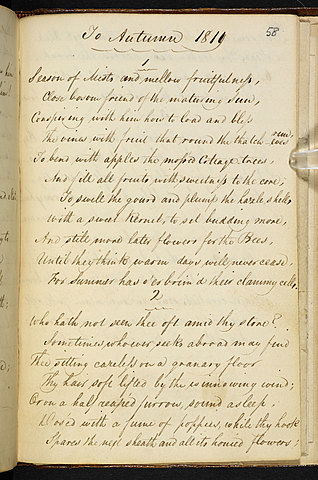 To Autumn 1819
58
1
Season of Mists and mellow fruitfulness,
Close bosom friend of the maturing Sun,
Conspiring with him how to load and bless
The vines with fruit that round the thatch eves run,
To bend with apples the moss'd Cottage trees,
And fill all fruits with sweetness to the core;
To swell the gourd and plump the hazle shells
With a sweet kernel, to set budding more,
And still more later flowers for the Bees,
Until they think warm days will never cease
For Summer has o'erbrim'd their clammy cells.
2
Who hath not seen thee oft amid thy store?
Sometimes whoever seeks abroad may find
Thee sitting careless on a granary floor
Thy hair soft lifted by the winnowing wind;
Or on a half reaped furrow, sound asleep;
Dosed with a fume of poppies, while thy hook
Spares the next sheath and all its honied flowers;